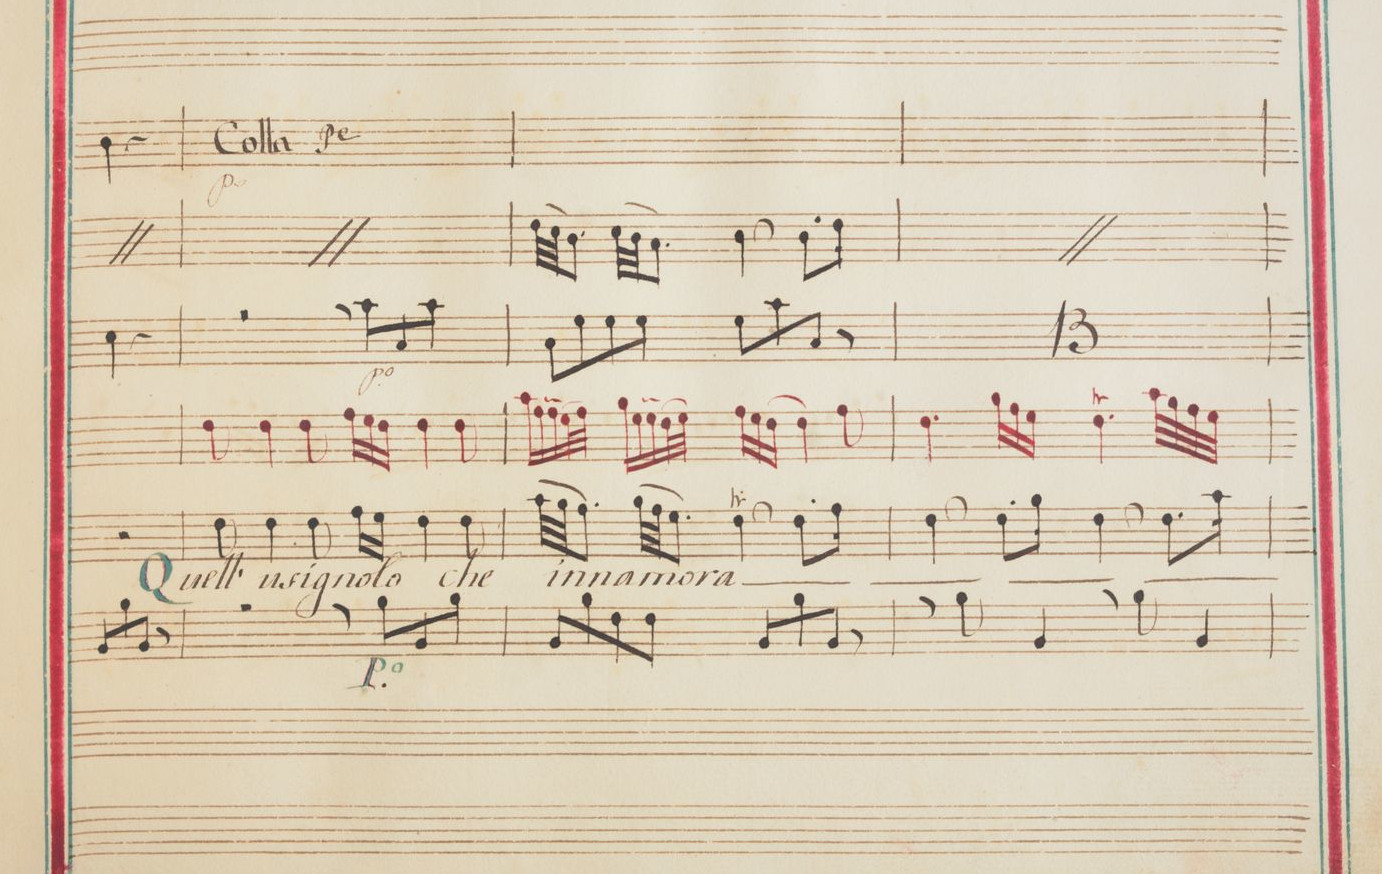 Colla pe
po
po
13
Quell' usignolo che innamora
P.o